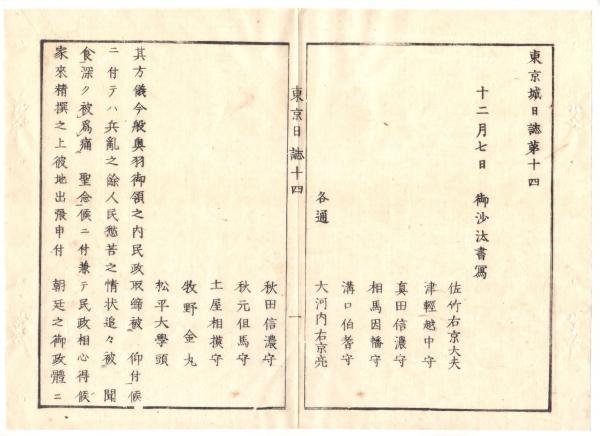 東京城日誌第十四
十二月七日　御沙汰書寫
佐竹右京大夫
津輕越中守
真田信濃守
相馬因幡守
溝口伯耆守
大河内右京亮
各通
東京日誌十四
一
秋田信濃守
秋元但馬守
土屋相摸守
牧野金丸
松平大學頭
其方儀今般奥羽御領之内民政取締被　仰付候
ニ付テハ兵亂之餘人民愁苦之情状追々被　聞
食深ク被爲痛　聖念候ニ付兼テ民政相心得候
家來精撰之上彼地出張申付　朝廷之御政體ニ